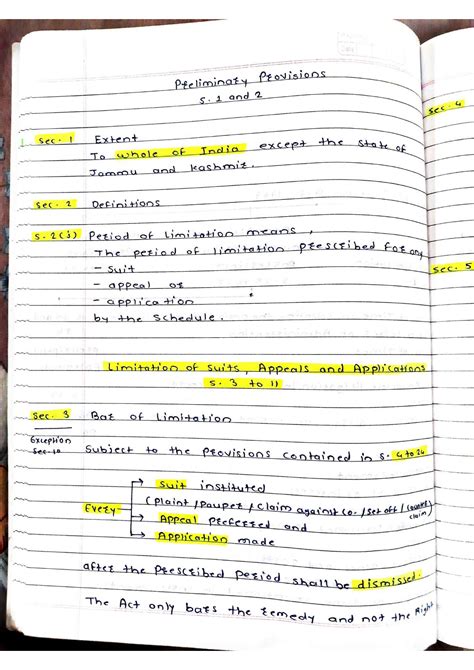 Preliminary Provisions
S. 1 and 2
Sec. 1 Extent
To whole of India except the state of
Jammu and Kashmir.
Sec. 2 Definitions
S. 2(j) Period of limitation means,
The period of limitation prescribed for any
- suit
- appeal or
- application
by the Schedule.
Limitation of Suits, Appeals and Applications
S. 3 to 11
Sec. 3 Bar of Limitation
Exception
Sec-10
Subject to the provisions contained in S. 4 to 24
Suit instituted
(plaint / pauper / claim against co- / set off / counter claim)
Every
Appeal preferred and
Application made
after the prescribed period shall be dismissed.
The Act only bars the remedy and not the Right
Sec. 4
Sec. 5